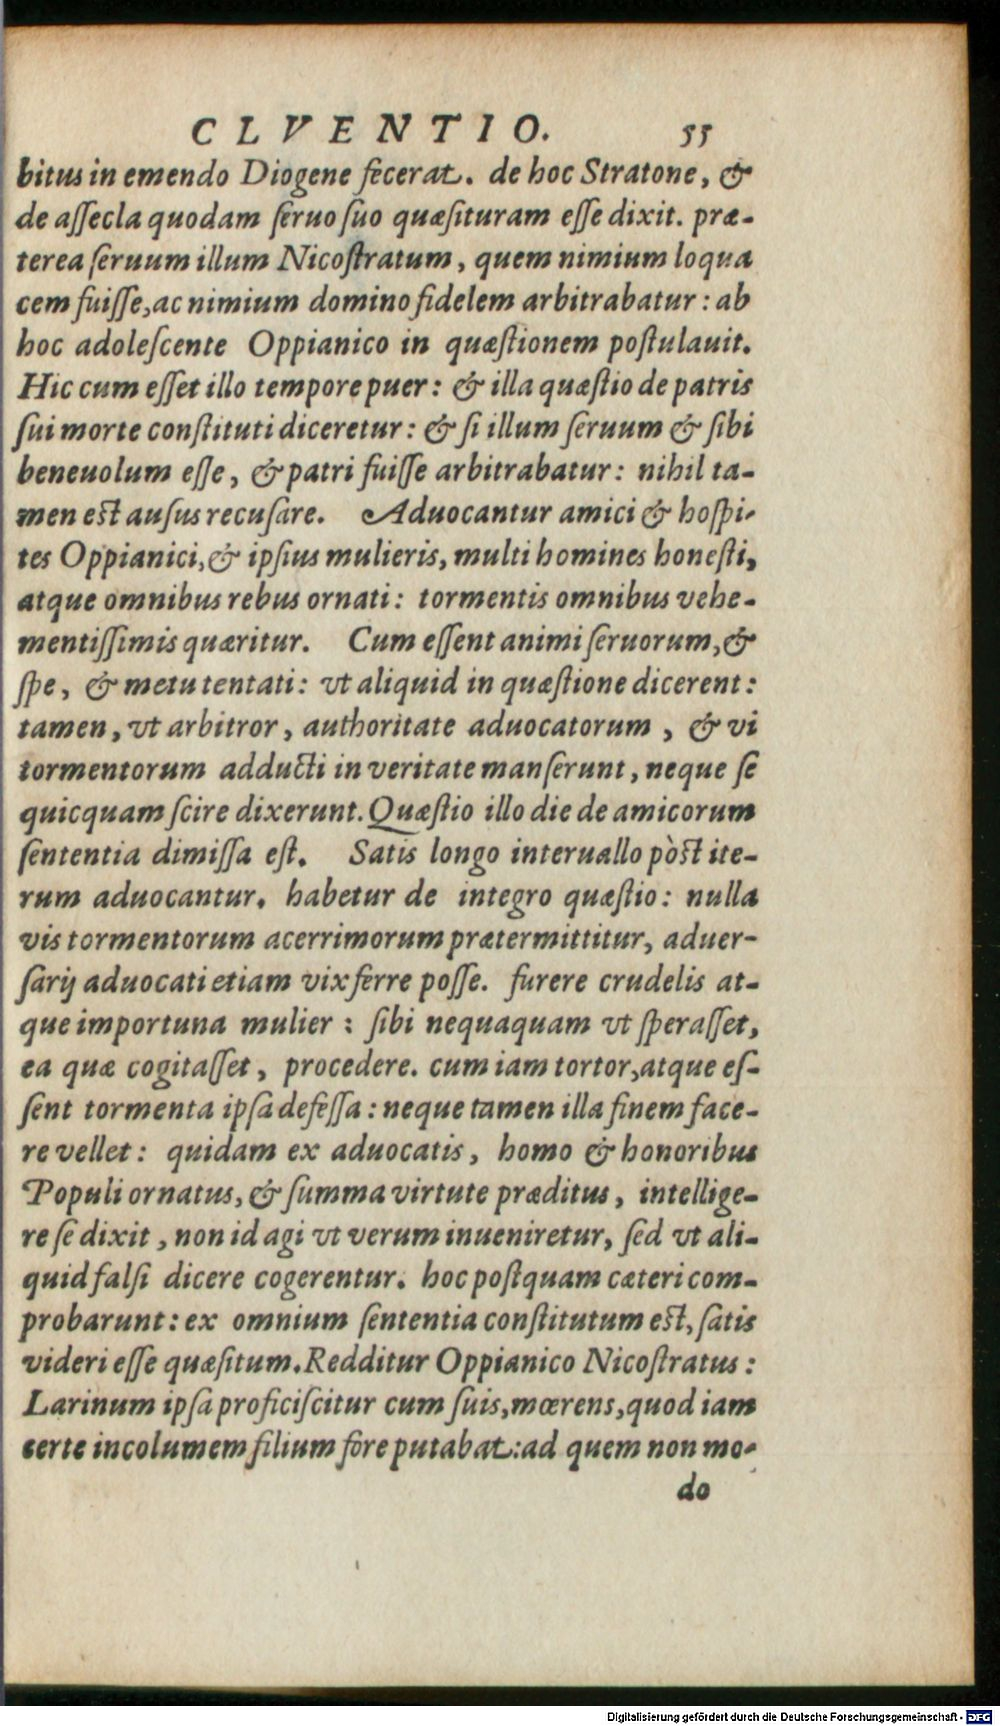 CLVENTIO. 55
bitus in emendo Diogene fecerat. de hoc Stratone, &
de aſſecla quodam ſeruo ſuo quæſituram eſſe dixit. præ-
terea ſeruum illum Nicoſtratum, quem nimium loqua
cem fuiſſe, ac nimium domino fidelem arbitrabatur: ab
hoc adoleſcente Oppianico in quæſtionem poſtulauit.
Hic cum eſſet illo tempore puer: & illa quæſtio de patris
ſui morte conſtituti diceretur: & ſi illum ſeruum & ſibi
beneuolum eſſe, & patri fuiſſe arbitrabatur: nihil ta-
men eſt auſus recuſare. Aduocantur amici & hoſpi-
tes Oppianici, & ipſius mulieris, multi homines honeſti,
atque omnibus rebus ornati: tormentis omnibus vehe-
mentiſſimis quæritur. Cum eſſent animi ſeruorum, &
ſpe, & metu tentati: vt aliquid in quæſtione dicerent:
tamen, vt arbitror, authoritate aduocatorum, & vi
tormentorum adducti in veritate manſerunt, neque ſe
quicquam ſcire dixerunt. Quæſtio illo die de amicorum
ſententia dimiſſa eſt. Satis longo interuallo pòſt ite-
rum aduocantur. habetur de integro quæſtio: nulla
vis tormentorum acerrimorum prætermittitur, aduer-
ſarij aduocati etiam vix ferre poſſe. furere crudelis at-
que importuna mulier: ſibi nequaquam vt ſperaſſet,
ea quæ cogitaſſet, procedere. cum iam tortor, atque eſ-
ſent tormenta ipſa defeſſa: neque tamen illa finem face-
re vellet: quidam ex aduocatis, homo & honoribus
Populi ornatus, & ſumma virtute præditus, intellige-
re ſe dixit, non id agi vt verum inueniretur, ſed vt ali-
quid falſi dicere cogerentur. hoc poſtquam cæteri com-
probarunt: ex omnium ſententia conſtitutum eſt, ſatis
videri eſſe quæſitum. Redditur Oppianico Nicoſtratus:
Larinum ipſa proficiſcitur cum ſuis, mœrens, quod iam
certe incolumem filium fore putabat: ad quem non mo-
do
Digitalisierung gefördert durch die Deutsche Forschungsgemeinschaft - DFG